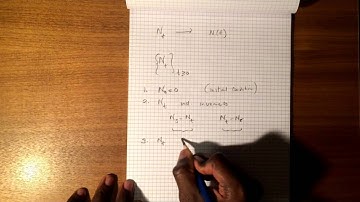 N_t → N(t)
{N_t}_{t≥0}
1. N_0 = 0 (initial condition)
2. N_t ind increments
N_t - N_s
3. N_t